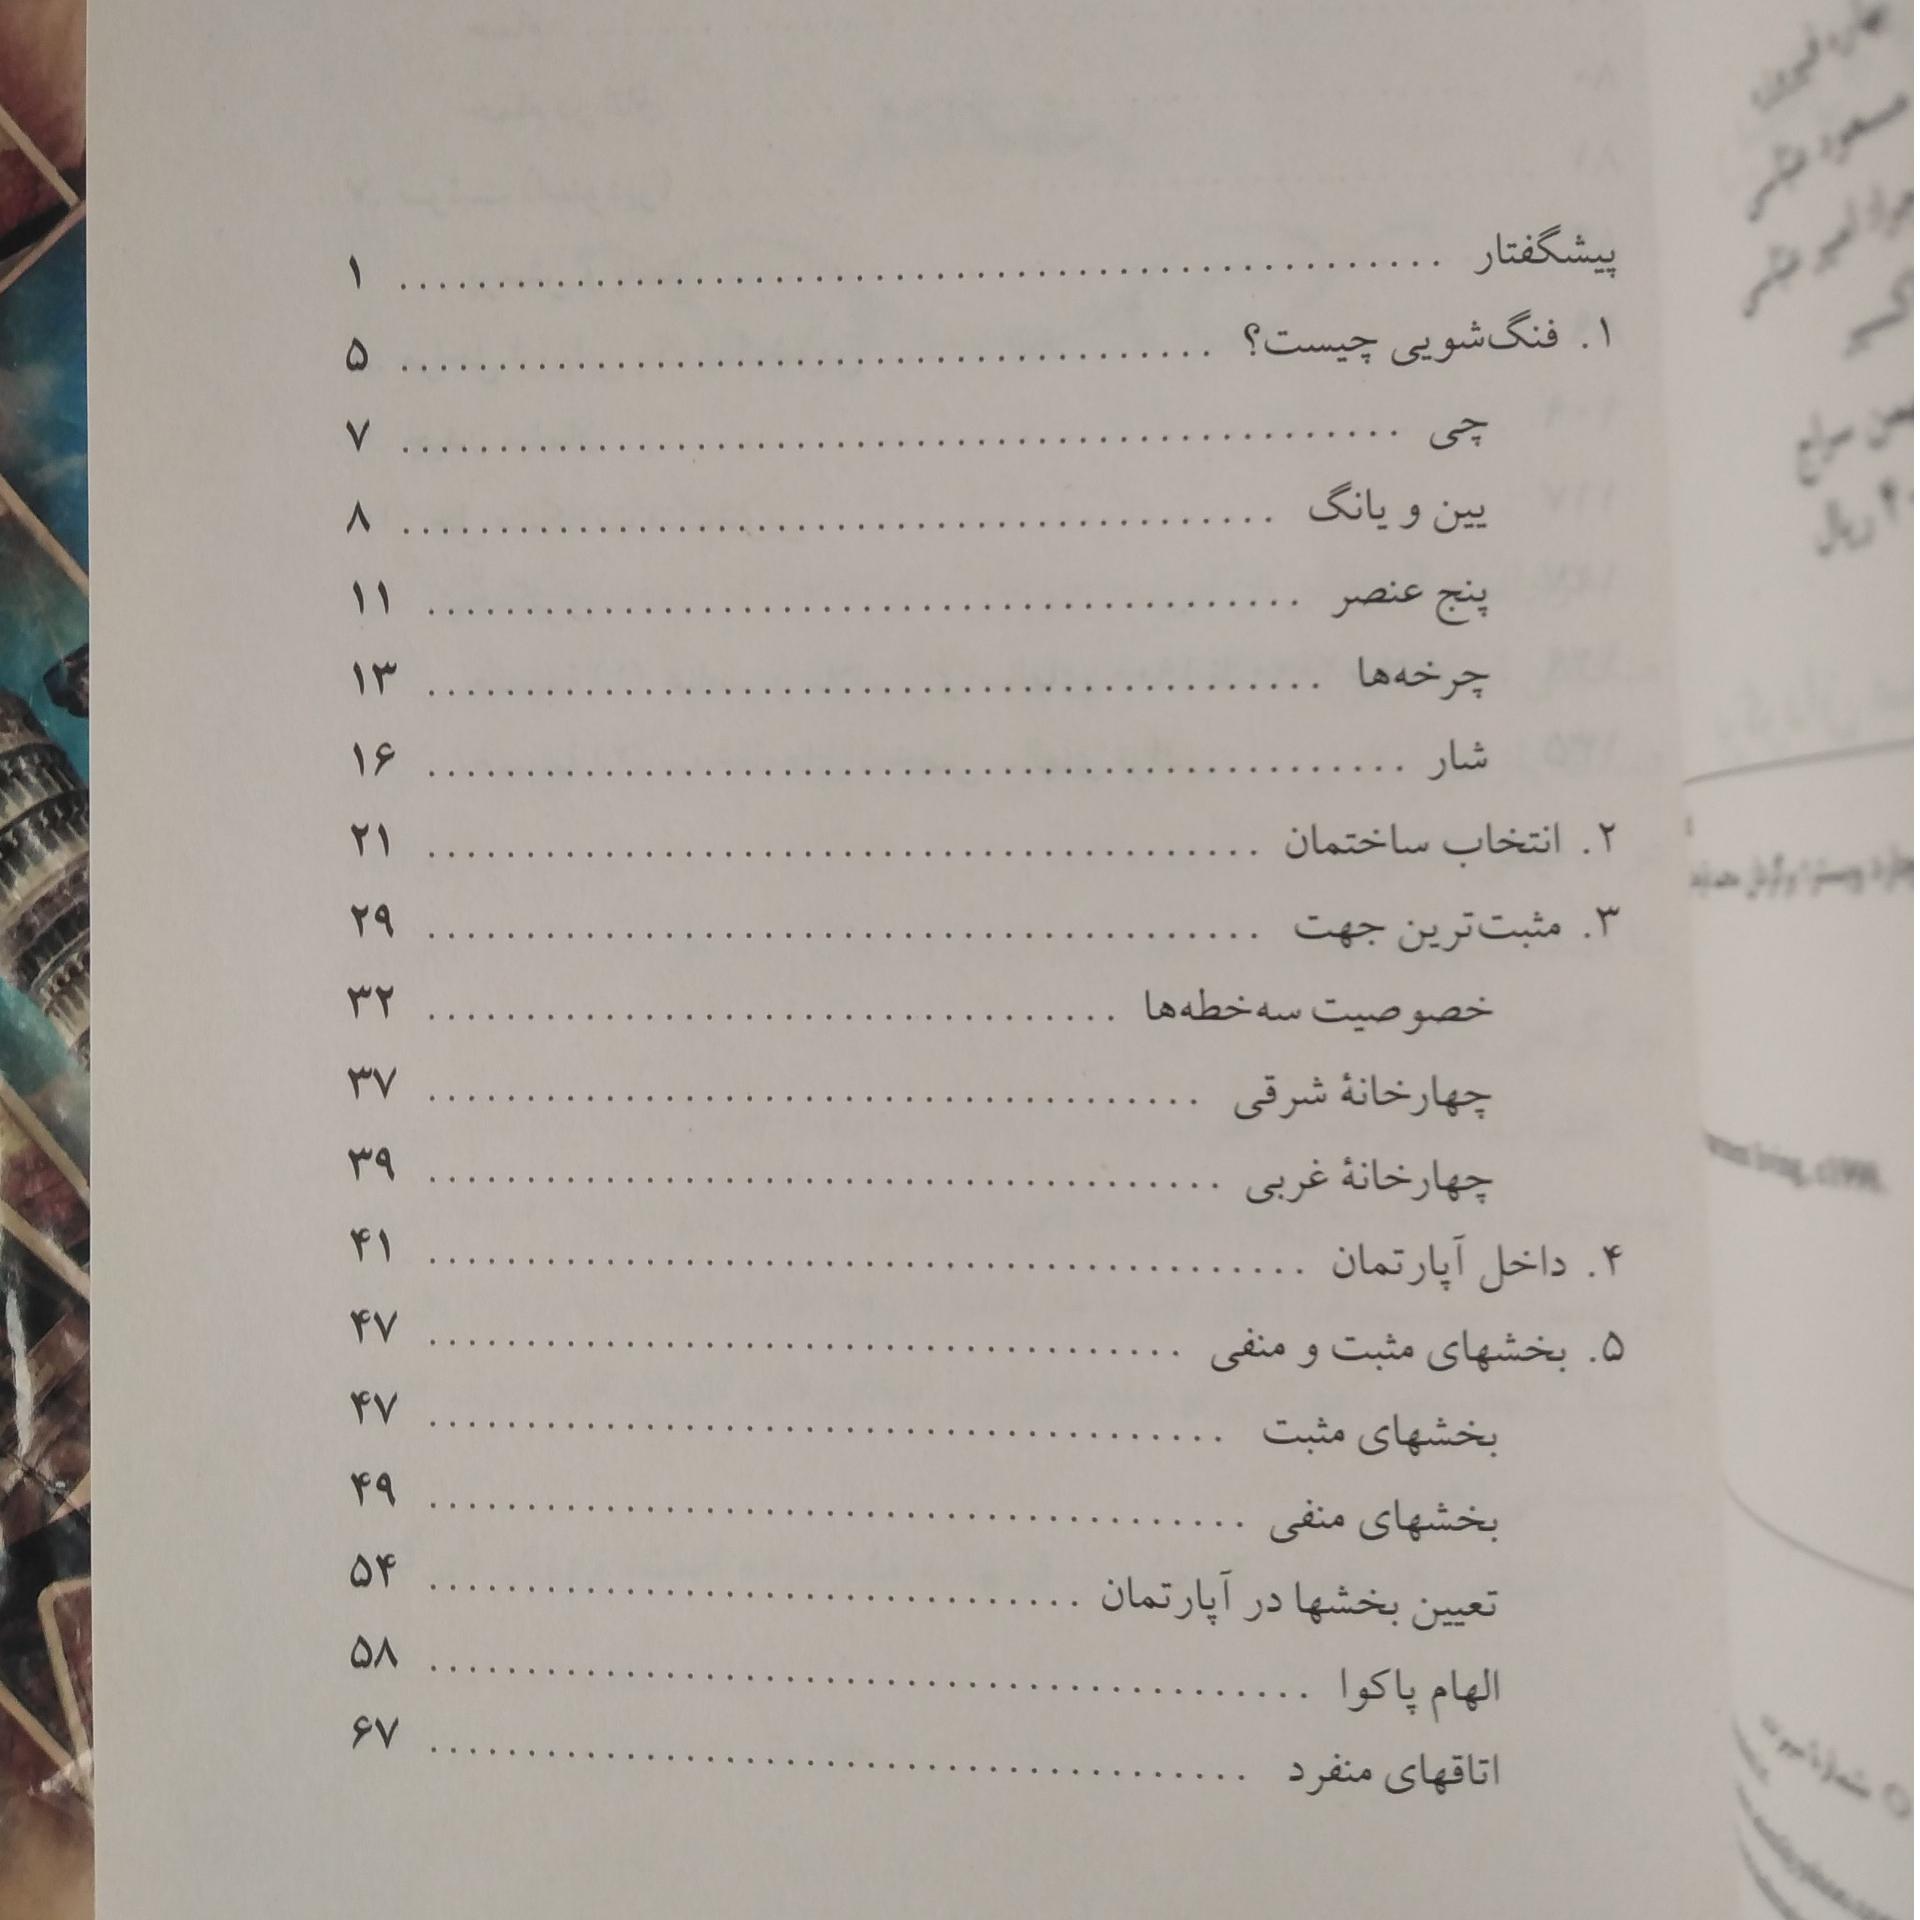 پیشگفتار ........................................ ۱
۱. فنگ‌شویی چیست؟ ........................................ ۵
چی ........................................ ۷
یین و یانگ ........................................ ۸
پنج عنصر ........................................ ۱۱
چرخه‌ها ........................................ ۱۳
شار ........................................ ۱۶
۲. انتخاب ساختمان ........................................ ۲۱
۳. مثبت‌ترین جهت ........................................ ۲۹
خصوصیت سه‌خطه‌ها ........................................ ۳۲
چهارخانهٔ شرقی ........................................ ۳۷
چهارخانهٔ غربی ........................................ ۳۹
۴. داخل آپارتمان ........................................ ۴۱
۵. بخشهای مثبت و منفی ........................................ ۴۷
بخشهای مثبت ........................................ ۴۷
بخشهای منفی ........................................ ۴۹
تعیین بخشها در آپارتمان ........................................ ۵۴
الهام پاکوا ........................................ ۵۸
اتاقهای منفرد ........................................ ۶۷
مسعود
ریال